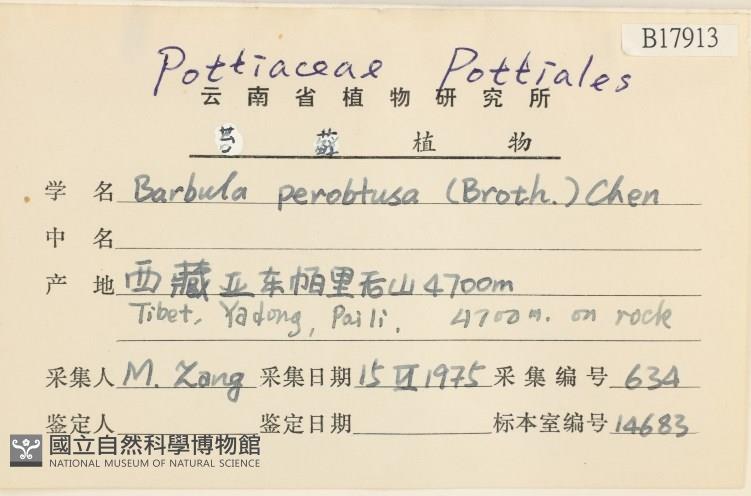 B17913
Pottiaceae Pottiales
云南省植物研究所
苔藓植物
学名 Barbula perobtusa (Broth.) Chen
中名
产地 西藏亚东帕里后山4700m
Tibet, Yadong, Paili, 4700m. on rock
采集人 M. Zang 采集日期 15 VI 1975 采集编号 634
鉴定人 鉴定日期 标本室编号 14683
國立自然科學博物館
NATIONAL MUSEUM OF NATURAL SCIENCE